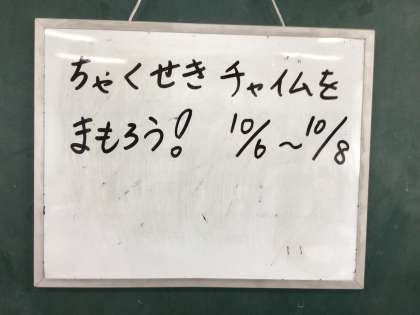 ちゃくせきチャイムを
まもろう! 10/6〜10/8